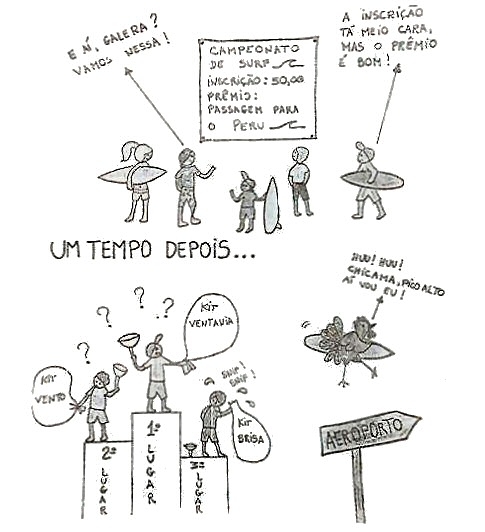 E AÍ, GALERA?
VAMOS NESSA!
A INSCRIÇÃO
TÁ MEIO CARA,
MAS O PRÊMIO
É BOM!
CAMPEONATO
DE SURF
INSCRIÇÃO: 50,00
PRÊMIO:
PASSAGEM PARA
O PERU
UM TEMPO DEPOIS...
HUU! HUU!
CHICAMA, PICO ALTO
AÍ VOU EU!
?
?
?
..?
KIT
VENTANIA
KIT
VENTO
SNIF!
SNIF!
KIT
BRISA
1º
LUGAR
2º
LUGAR
3º
LUGAR
AEROPORTO